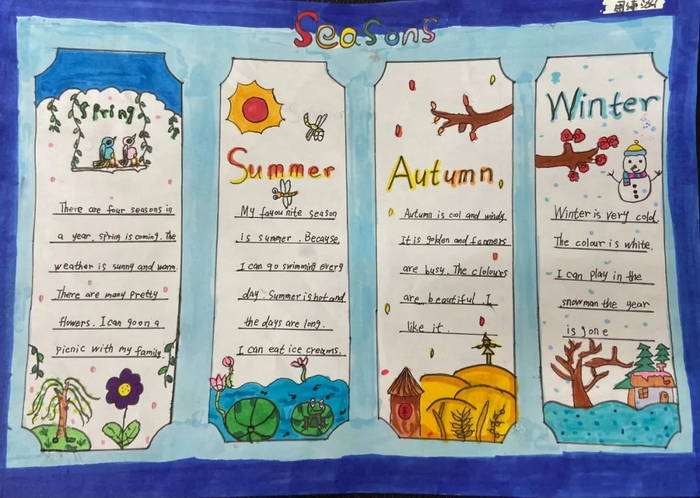 Seasons
Spring
There are four seasons in
a year. Spring is coming. The
weather is sunny and warm.
There are many pretty
flowers. I can go on a
picnic with my family.
Summer
My favounite season
is summer. Because
I can go swimming every
day. Summer is hot and
the days are long.
I can eat ice creams.
Autumn
Autumn is cool and windy.
It is golden and farmers
are busy. The clolours
are beautiful I
like it.
Winter
Winter is very cold.
The colour is white.
I can play in the
snowman the year
is gone